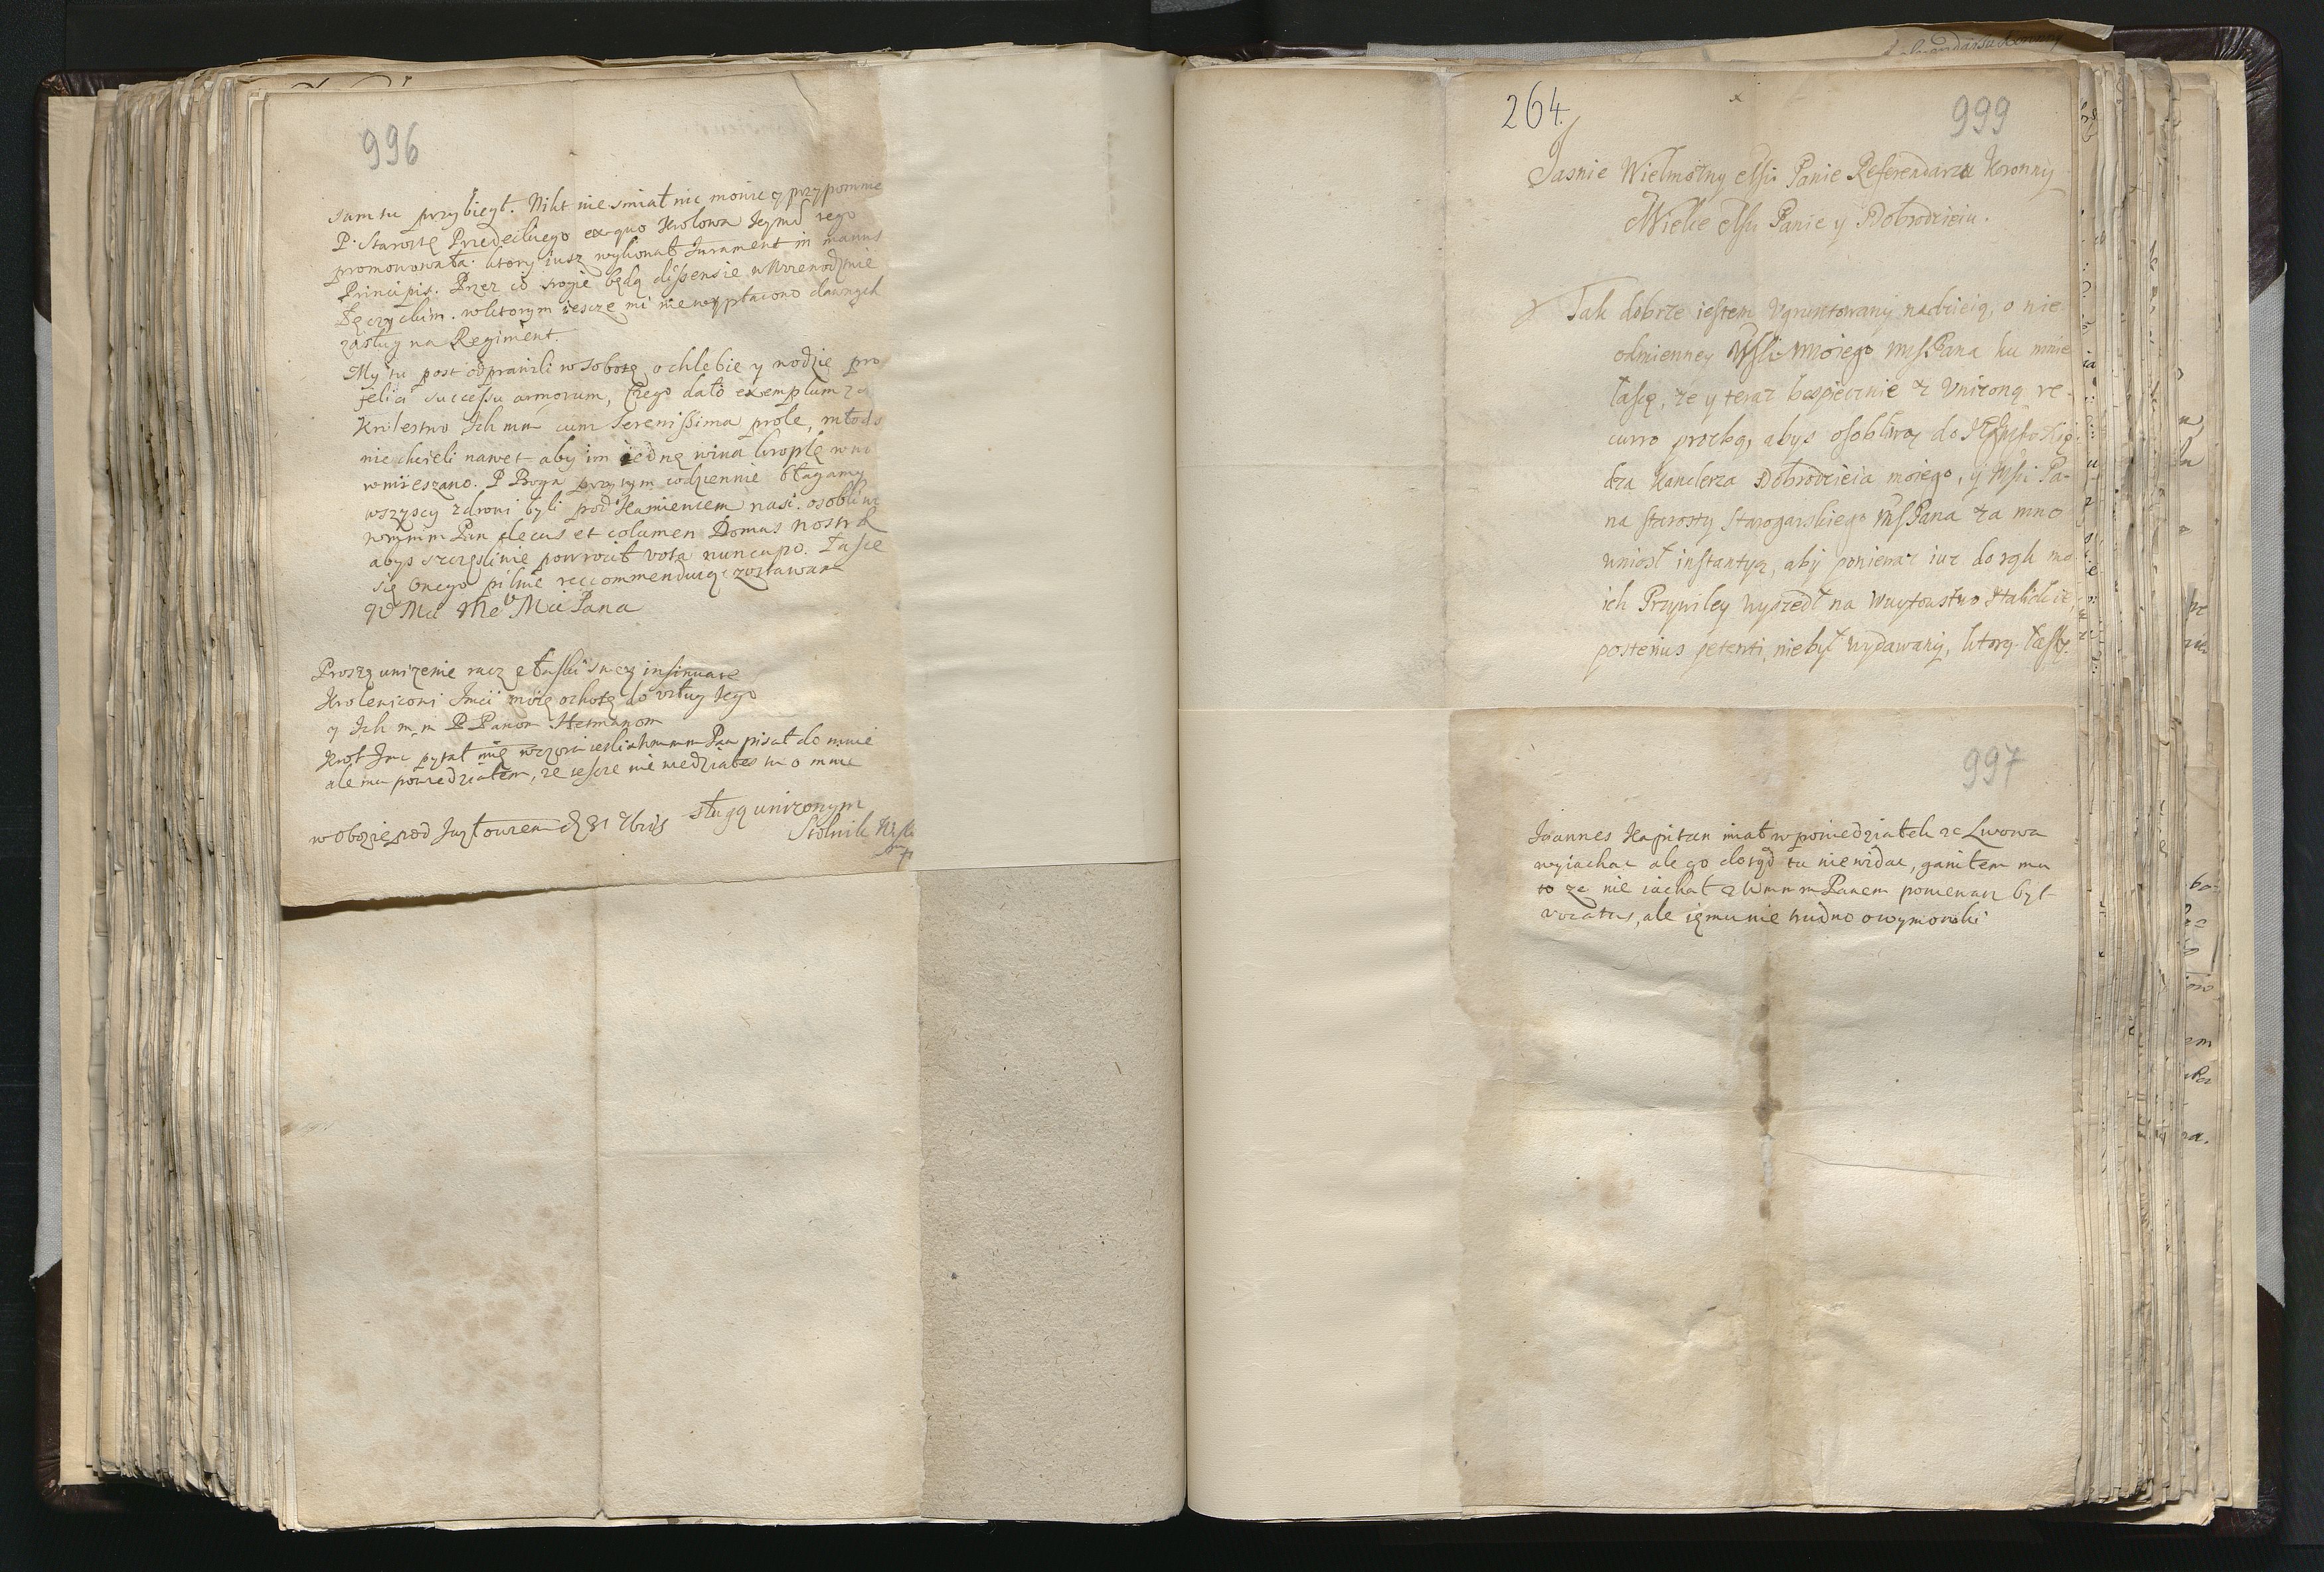 996
sam tu przybiegł. Nikt nie smiał nic mowic y przypomnie
P. Starostę Przedeckiego ex quo Krolowa Jeymć tego
promowowała. ktory iusz wykonał Jurament in manus
Principis. Przez co srogie będą dissensie w Woiewodztwie
Łęczyckim. w ktorym iescze mi nie wypłacono dawnych
zasług na Regiment.
My tu post odprawili w Sobotę o chlebie y wodzie pro
felici successu armorum, Czego dało exemplum
Krolestwo Ich mm cum Serenissima prole, młodsi
nie chcieli nawet aby im iednę wina kroplę w wo
wmieszano. P Boga przytym codziennie błagamy
wszyscy zdrowi byli pod Kamiencem nasi. osobliwie
wmmm Pan decus et columen Domus nostræ
abys szczęsliwie powrocił vota nuncupo. Łasce
się Onego pilnie reccommenduię zostawam
Mci Pana
Proszę unizenie racz z łaski swey insinuare
Krolewiconi Jmci moię ochotę do usług Jego
y Ich m m P Panom Hetmanom
Krol Jmc pytał mię wczora iesli wmmm Pan pisał do mnie
ale mu powiedziałem, ze iescze nie wiedziałes tu o mnie
sługą unizonym
w Obozie pod Juzłowcem d 31 7bris
Stolnik
264.
999
Jasnie Wielmożny Mśći Panie Referendarzu Koronny
Wielce Mśći Panie y Dobrodzieiu.
Tak dobrze iestem Vgruntowany nadzieią, o nie-
odmienney WMśći Moiego MśPana ku mnie
łascę, ze y teraz bespiecznie z Vnizoną re-
curro prozbą, abys osobliwą do Xię
dza Kanclerza Dobrodzieia moiego, y Mśći Pa-
na Starosty Starogarskiego MśPana za mno
uniosł instantyą, aby poniewaz iuz do rąk mo
ich Przywiley wyszedł na Wuytowstwo Halickie,
posterius petenti, niebył wydawany, ktorą łaskę
997
Joannes Kapitan miał w poniedziałek ze Lwowa
wyiachac ale go dotąd tu nie widac, ganiłem mu
to ze nie iachał z Wmmm Panem poniewaz był
vocatus, ale iemu nie trudno o wymowki